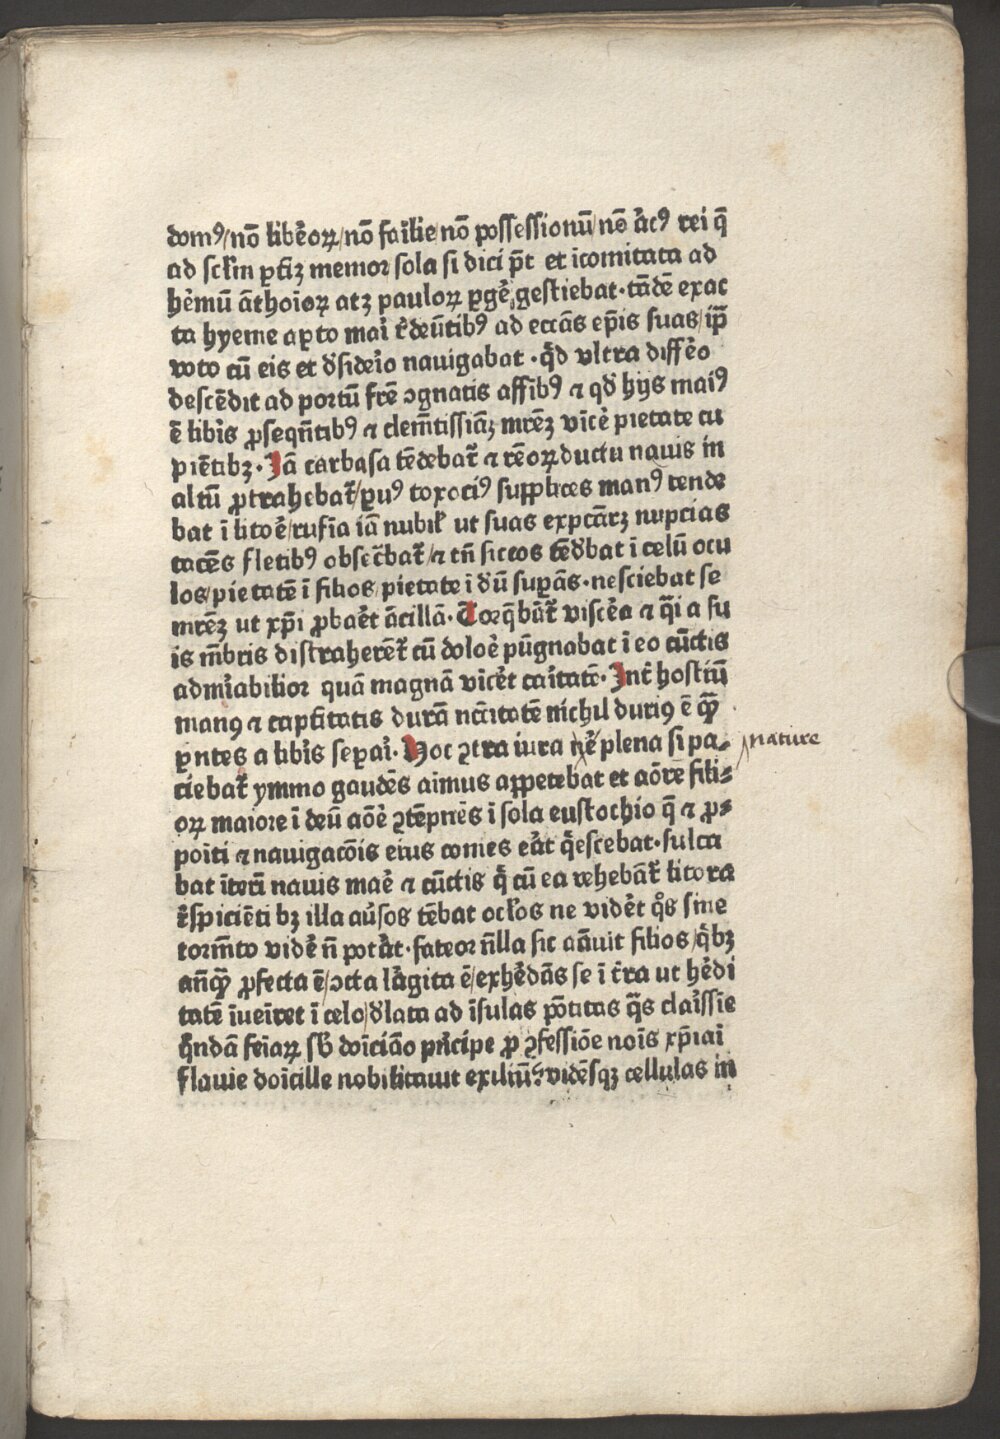 domꝰ/nō libēoꝝ/nō failie/nō possessionū/nō ācꝰ rei q̄
ad sclm ꝑtīꝫ memor/sola si dici p̄t et īcomitata ad
hēmū āthoīoꝝ atꝫ pauloꝝ ꝑgē gestiebat·tādē exac
ta hyeme aꝑto mai r̄deūtibꝰ ad eccās ep̄is suas/ip̄
voto cū eis et d̄siderio nauigabat ·qd̄ vltra differo
descēdit ad portū fr̄e ↄgnatis affibꝰ ⁊ qd̄ hijs maiꝰ
ē libīs ꝓseqn̄tibꝰ ⁊ clem̄tissiāꝫ mr̄eꝫ vīcē pietate cu
piētibꝫ·Jā carbasa tēdebat̄ ⁊ rēoꝝ ductu nauis in
altū ꝓtrahebat̄/ꝑuꝰ toxociꝰ supplices manꝰ tende
bat ī litoē/rufīa iā nubiľ ut suas expc̄āꝛꝫ nupcias
tacēs fletibꝰ obsec̄bat̄/⁊ tn̄ siccos tēd̄bat ī celū ocu
los/pietatē ī filios/pietate ī d̄ū suꝑās·nesciebat se
mr̄eꝫ ut xp̄i ꝓbaēt ācillā·Torq̄bat̄ viscēa ⁊ q̄i a su
is mb̄ris distraherēt̄ cū doloē pūgnabat ī eo cūctis
admīabilior quā magnā vīcēt caītatē·Int̄ hostiū
manꝰ ⁊ captītatis durā nc̄citatē nichil duriꝰ ē qꝫ
ꝑntes a libīs seꝑaī·Hoc ↄtra iura nr̄ē plena fi pa⸗ nature
ciebat̄ ymmo gaudēs aīmus appetebat et aōrē fili⸗
oꝝ maiore ī deū aōē ↄtēpnēs ī sola eustochio q̄ ⁊ ꝓ⸗
poīti ⁊ nauigacōis eius comes eāt q̄escebat·sulca
bat īteri nauis maē ⁊ cūctis q̄ cū ea vehebāt̄ litora
r̄spiciētibꝫ illa aūsos tēbat oclos ne vidēt qͦs sine
torm̄to vidē n̄ potāt·fateor n̄lla sic amauit filios/q̄bꝫ
anqꝫ ꝓfecta ē/ↄcta lāgita ē/exhēdās se ī t̄ra ut hēdi
tatē īueīret ī celo/d̄lata ad īsulas pōtitas q̄s claīssie
q̄ndā feīaꝝ sb̄ doīciāo pn̄cipe ꝓ ↄfessiōe noīs xp̄iai
flauie doīcille nobilitauit exiliū:vidēsqꝫ cellulas in